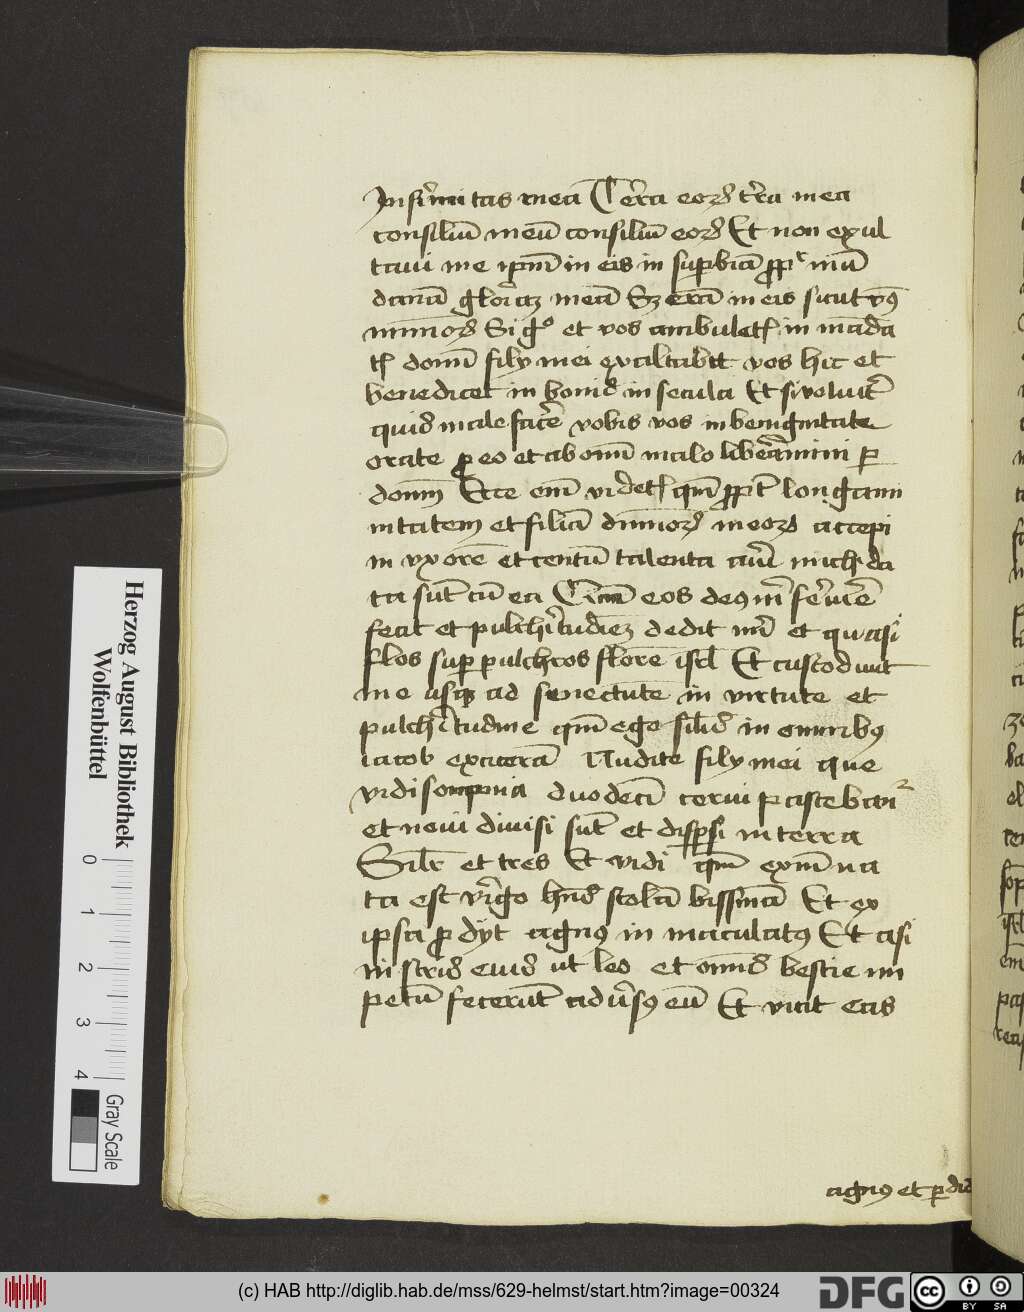 Infirmitas mea Terra eorum terra mea
consilium meum consilium eorum Et non exul
tavi me ipsum in eis in superbia propter mun
danam gloriam meam Sed eram in eis sicut unus
minimorum Si ergo et vos ambuletis in manda
tis domini filij mei exaltabit vos hic et
benedicet in bonis in secula Et si voluerit
quis male facere vobis vos in benignitate
orate pro eo et ab omni malo liberamini per
dominum Ecce enim videtis quoniam propter longani
mitatem et filiam dominorum meorum accepi
in uxorem et centum talenta auri michi da
ta sunt cum ea eos deus mihi servire
fecit et pulchritudinem dedit mihi et quasi
flos super pulchros florere israel Et custodivit
me usque ad senectutem in virtute et
pulchritudine quoniam ego similis in omnibus
iacob exciteram Audite filij mei que
vidi sompnia duodecim cervi pascebantur
et novi divisi sunt et dispersi in terra
Similiter et tres Et vidi quoniam ex una
ta est virgo habens stolam bissinam Et ex
ipsa prodijt agnus inmaculatus Et a si
nistris eius ut leo et omnes bestie im
petum fecerunt adversus eum Et vicit eas
agnus et perdid
Herzog August Bibliothek
Wolfenbüttel
0 1 2 3 4
Gray Scale
(c) HAB http://diglib.hab.de/mss/629-helmst/start.htm?image=00324
DFG
cc BY SA